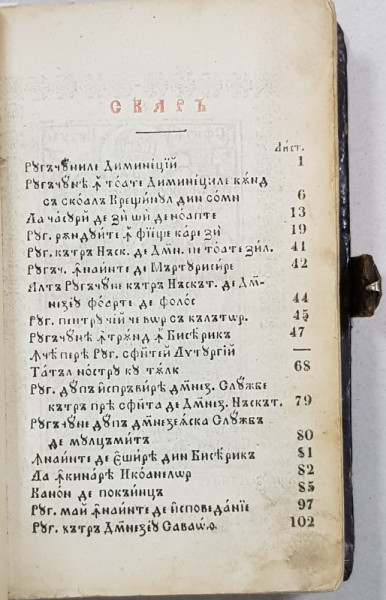 СКАРЪ
Лист.
Ругъчюниле Диминеций 1
Ругъчюнѣ ꙟ тоате Диминециле кѫнд
съ скоалъ Крещинул дин сомн 6
Ла часурй де зй шй де ноапте 13
Руг. рѫндуйте ꙟ фїеще каре зй 19
Руг. кътрѫ Нъск. де Дмн. пе тоате зил. 41
Ругъч. ꙟнаинте де Мъртурисѝре 42
Ялтъ Ругъчюне кътрѫ Нъскът. де Дм-
незеў фоарте де фолос 44
Руг. пентру чїй че вор съ кълътор. 45
Ругъчюнѣ ꙟтрѫнд ꙟ Бисерикъ 47
Ꙟчепере Руг. сфинтей Лутургїй —
Татъл ностру ку тълк 68
Руг. дупъ испръвирѣ дмнез. Службе
кътрѫ прѣ сфинта де Дмнез. Нъскът. 79
Ругъчюне дупъ дмнезеяска Службъ
де мулцъмит 80
Ꙟнаинте де еширѣ дин Бисерикъ 81
Ла ꙟкинарѣ Икоанелѡр 82
Канон де покъинцъ 85
Руг. май ꙟнаинте де исповеданїе 97
Руг. кътрѫ Дмнезеў Саваѡѳ 102